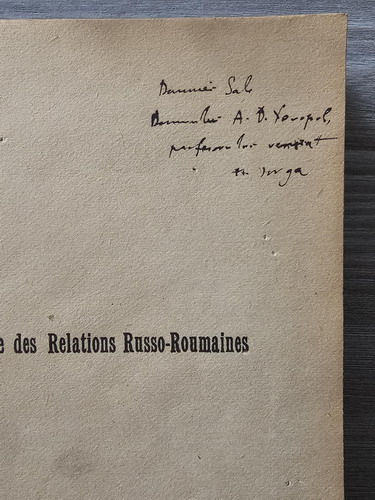 Domniei Sale
Domnului A. D. Xenopol,
profesorului venerat
N. Iorga
e des Relations Russo-Roumaines